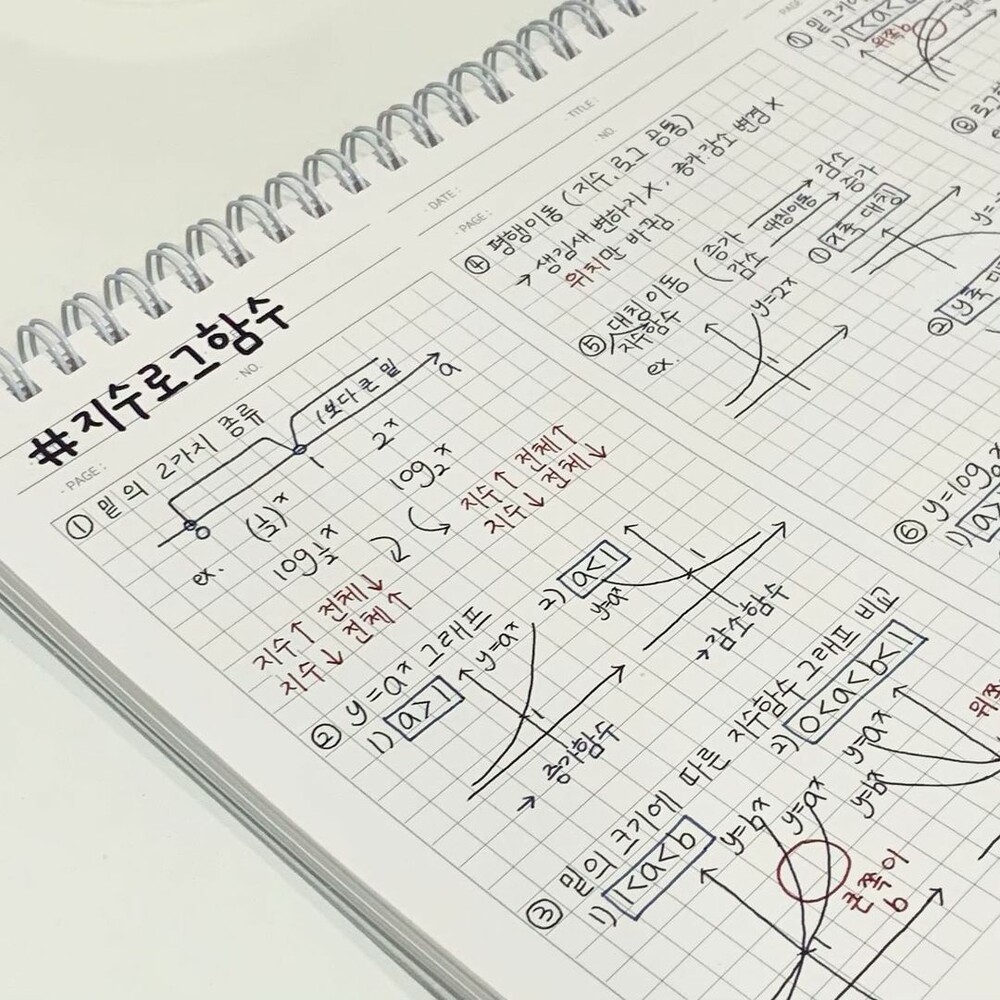 #지수로그함수
PAGE :
NO.
① 밑의 2가지 종류
1보다 큰 밑
0
1
a
ex.
(1/2)^x
2^x
log_{1/2} x
log_2 x
지수↑ 전체↑
지수↓ 전체↓
지수↑ 전체↓
지수↓ 전체↑
② y=a^x 그래프
1) a>1
y=a^x
1
→ 증가함수
2) a<1
y=a^x
1
→감소함수
③ 밑의 크기에 따른 지수함수 그래프 비교
1) 1<a<b
y=b^x
y=a^x
1
b
2) 0<a<b<1
y=a^x
y=b^x
DATE :
PAGE :
TITLE :
NO.
④ 평행이동 (지수, 로그 공통)
→ 생김새 변하지 X, 증가.감소 변경 X
위치만 바뀜.
⑤ 대칭이동 (증가 → 감소
감소 → 증가
대칭이동
지수함수
ex.
y=2^x
1
① x축 대칭
②
⑥ y=log
1) a>
PAGE
⑦ 밑 크기
1) 1<a<
위쪽 b
⑧ 로그